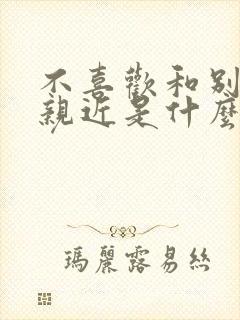 不喜歡和別
親近是什麼
瑪麗露易絲